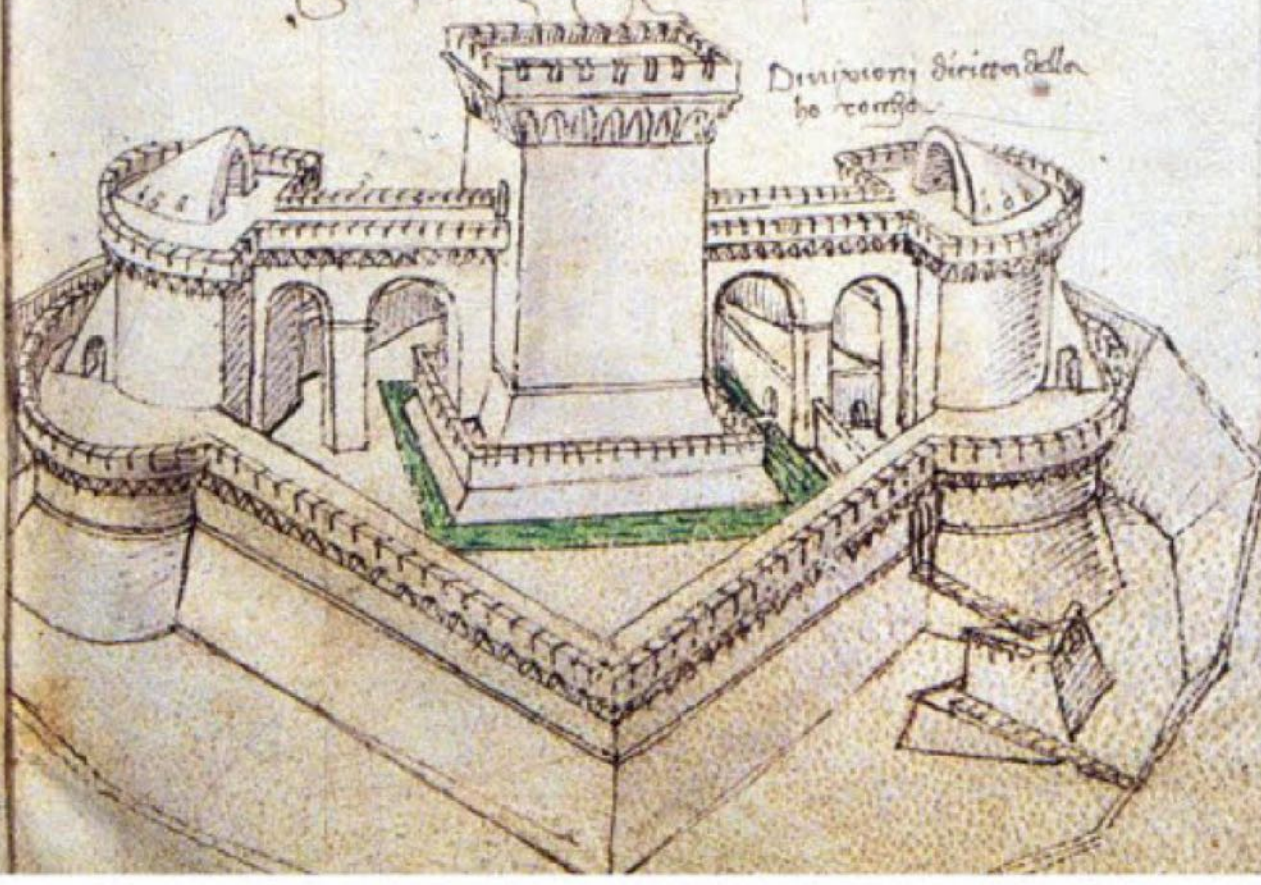 Divisionj dicictadella
ho roccha